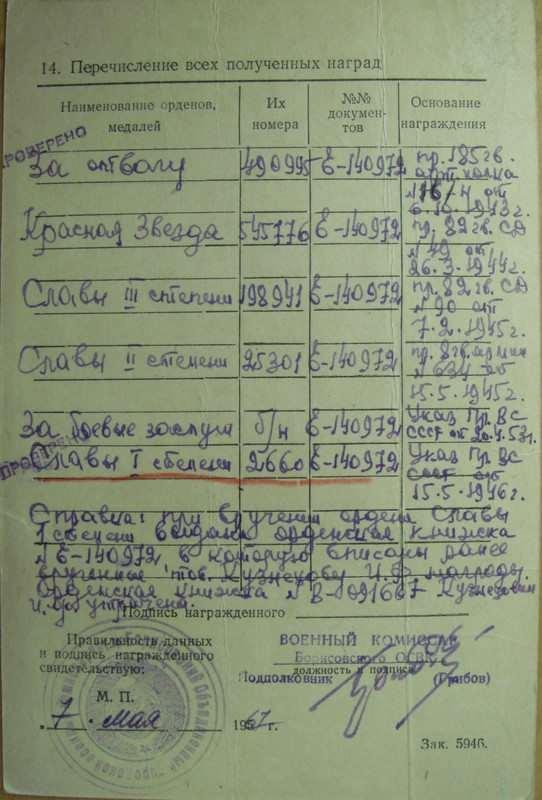 14. Перечисление всех полученных наград
Наименование орденов, медалей
Их номера
№№ документов
Основание награждения
ПРОВЕРЕНО
За отвагу 490995 Е-140972 пр. 185 гв. арт. полка
№ 16/н от 6.10.1943г.
Красная Звезда 545776 Е-140972 пр. 82 гв. СД
№ 49 от 26.3.1944г.
Славы III степени 198941 Е-140972 пр. 82 гв. СД
№ 90 от 7.2.1945г.
Славы II степени 25301 Е-140972 пр. 8 гв. армии
№ 634 от 15.5.1945г.
За боевые заслуги б/н Е-140972 Указ Пр. ВС
СССР от
Славы I степени 2660 Е-140972 Указ Пр. ВС
СССР от 15.5.1946г.
Справка: при вручении ордена Славы
I степени выдана орденская книжка
№ Е-140972 в которую вписаны ранее
врученные тов. Кузнецову И.Ф. награды.
Орденская книжка № В-091667 Кузнецовым
И.Ф. утрачена.
Подпись награжденного
Правильность данных
и подпись награжденного
свидетельствую:
ВОЕННЫЙ КОМИССАР
Борисовского ОГВК
должность и подпись
Подполковник (Грибов)
М. П.
7 мая 1967 г.
Зак. 5946.